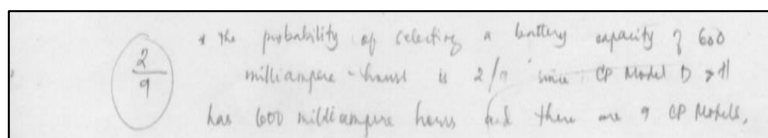 2
9
* The probability of selecting a battery capacity of 600
milliampere-hours is 2/9 since CP Model D
has 600 milliampere hours and there are 9 CP Models.